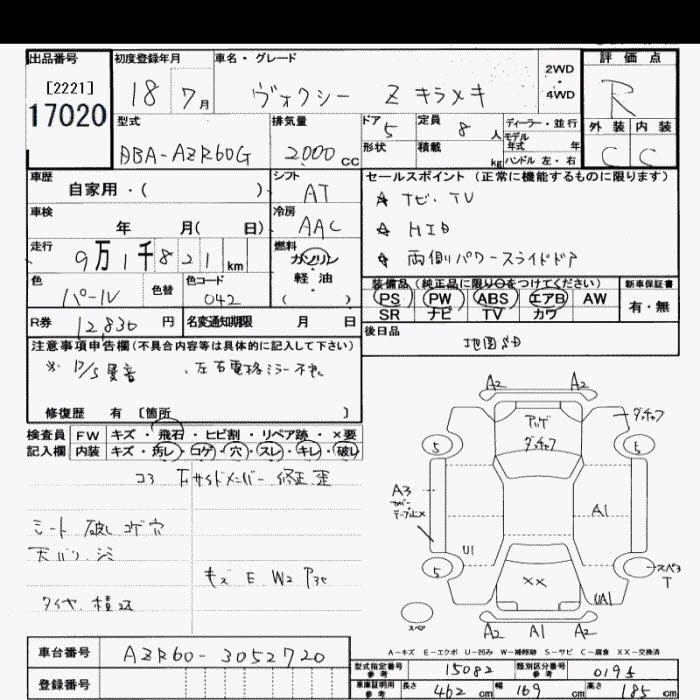 出品番号 初度登録年月 車名・グレード 評価点
[2221] 2WD
17020 18 7月 ヴォクシー Z キラメキ ・ R
4WD
型式 排気量 ドア 5 定員 8 人 ディーラー・並行 外装 内装
モデル
DBA-AZR60G 2000 cc 形状 積載 kg 年式 年 C C
ハンドル 左・右
車歴 シフト セールスポイント(正常に機能するものに限ります)
自家用・( ) AT ☆ ナビ、TV
車検 冷房 ☆ HID
年 月( 日) AAC ☆ 両側パワースライドドア
走行 燃料
9万1千821km ガソリン
色 色替 色コード 軽油 装備品(純正品に限り○をつけてください) 新車保証書
パール 042 ( ) PS PW ABS エアB AW 有・無
R券 12,830 円 名変通知期限 月 日 SR ナビ TV カワ
注意事項申告欄(不具合内容等は具体的に記入して下さい) 後日品
地図SD
※ P/S異音 、左右電格ミラー不良
修復歴 有 〔箇所 〕
検査員 FW キズ・飛石・ヒビ割・リペア跡・×要
記入欄 内装 キズ・汚レ・コゲ・穴・スレ・キレ・破レ
コラ Fサイドメンバー 修正 歪
シート 破レ コゲ穴
天バリ シミ
キズ E W2 アラ
タイヤ 積込
A2 A2
アッパ ダッチャフ
ダッチャフ
5 5
A3 A1
U1
5 ×× スペ3
T
UA1
スペ
A2 A1 A2
A-キズ E-エクボ U-凹み W-補修跡 S-サビ C-腐食 XX-交換済
車台番号 AZR60-3052720
型式指定番号 参考 15082 類別区分番号 参考 0195
登録番号 車庫証明用 参考 長さ 462 cm 幅 169 cm 高さ 185 cm